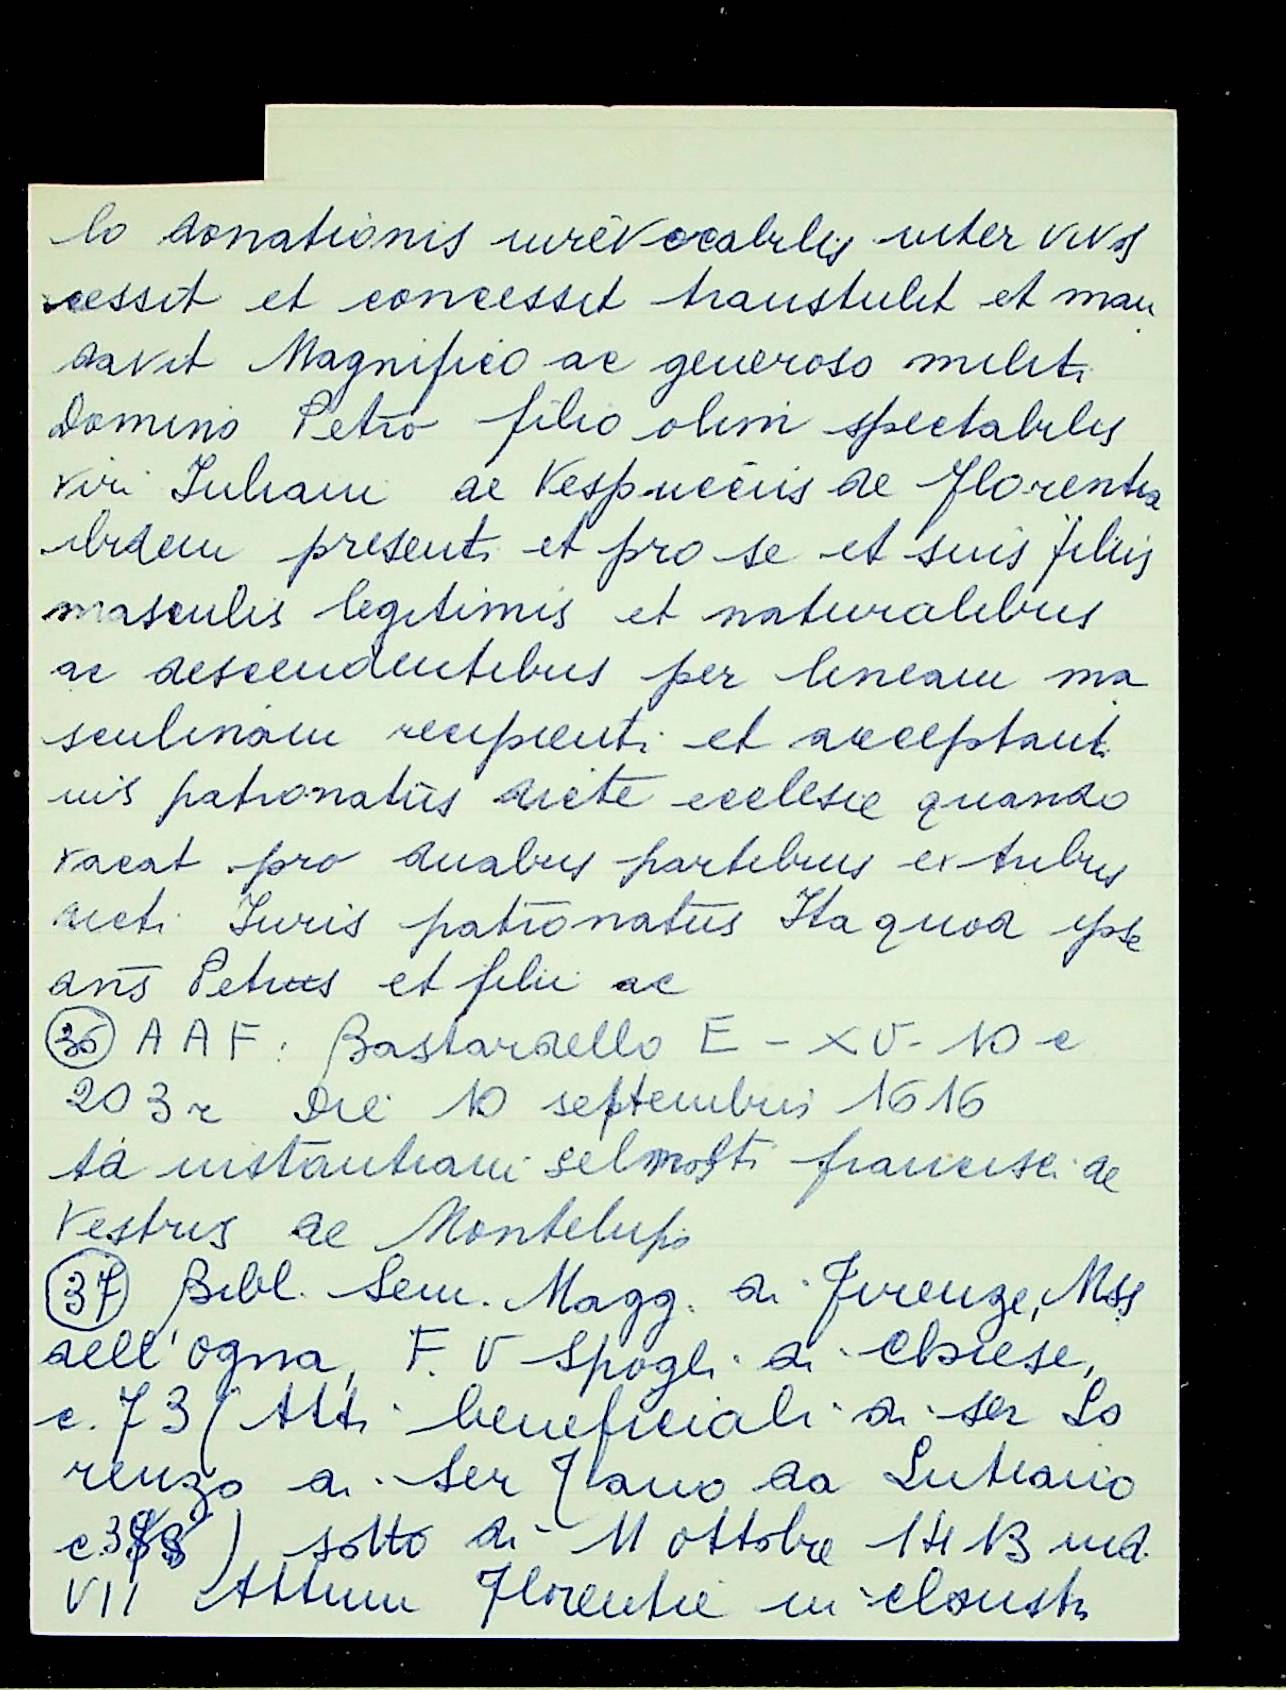 lo donationis inrevocabilis inter vivos
cessit et concessit transtulit et man
davit Magnifico ac generoso militi
Domino Petro filio olim spectabilis
viri Iuliani de Vespucciis de Florentia
ibidem presenti et pro se et suis filiis
masculis legitimis et naturalibus
ac descendentibus per lineam ma
sculinam recipienti et acceptanti
ius patronatus dicte ecclesie quando
vacat pro duabus partibus ex tribus
dicti Iuris patronatus Ita quod ipse
dns Petrus et filii ac
36 AAF: Bastardello E - XV - 10 c
203r Die 10 septembris 1616
Ad instantiam francisci de
Vestris de Montelupo
37 Bibl. Sem. Magg. di Firenze, Mss
dell'Ogna, F. V Spogli di Chiese,
c. 73 (Atti beneficiali di ser Lo
renzo di ser Jano da Lutiano
sotto di 11 ottobre 1413 ind.
VII Attum Florentie in claustr